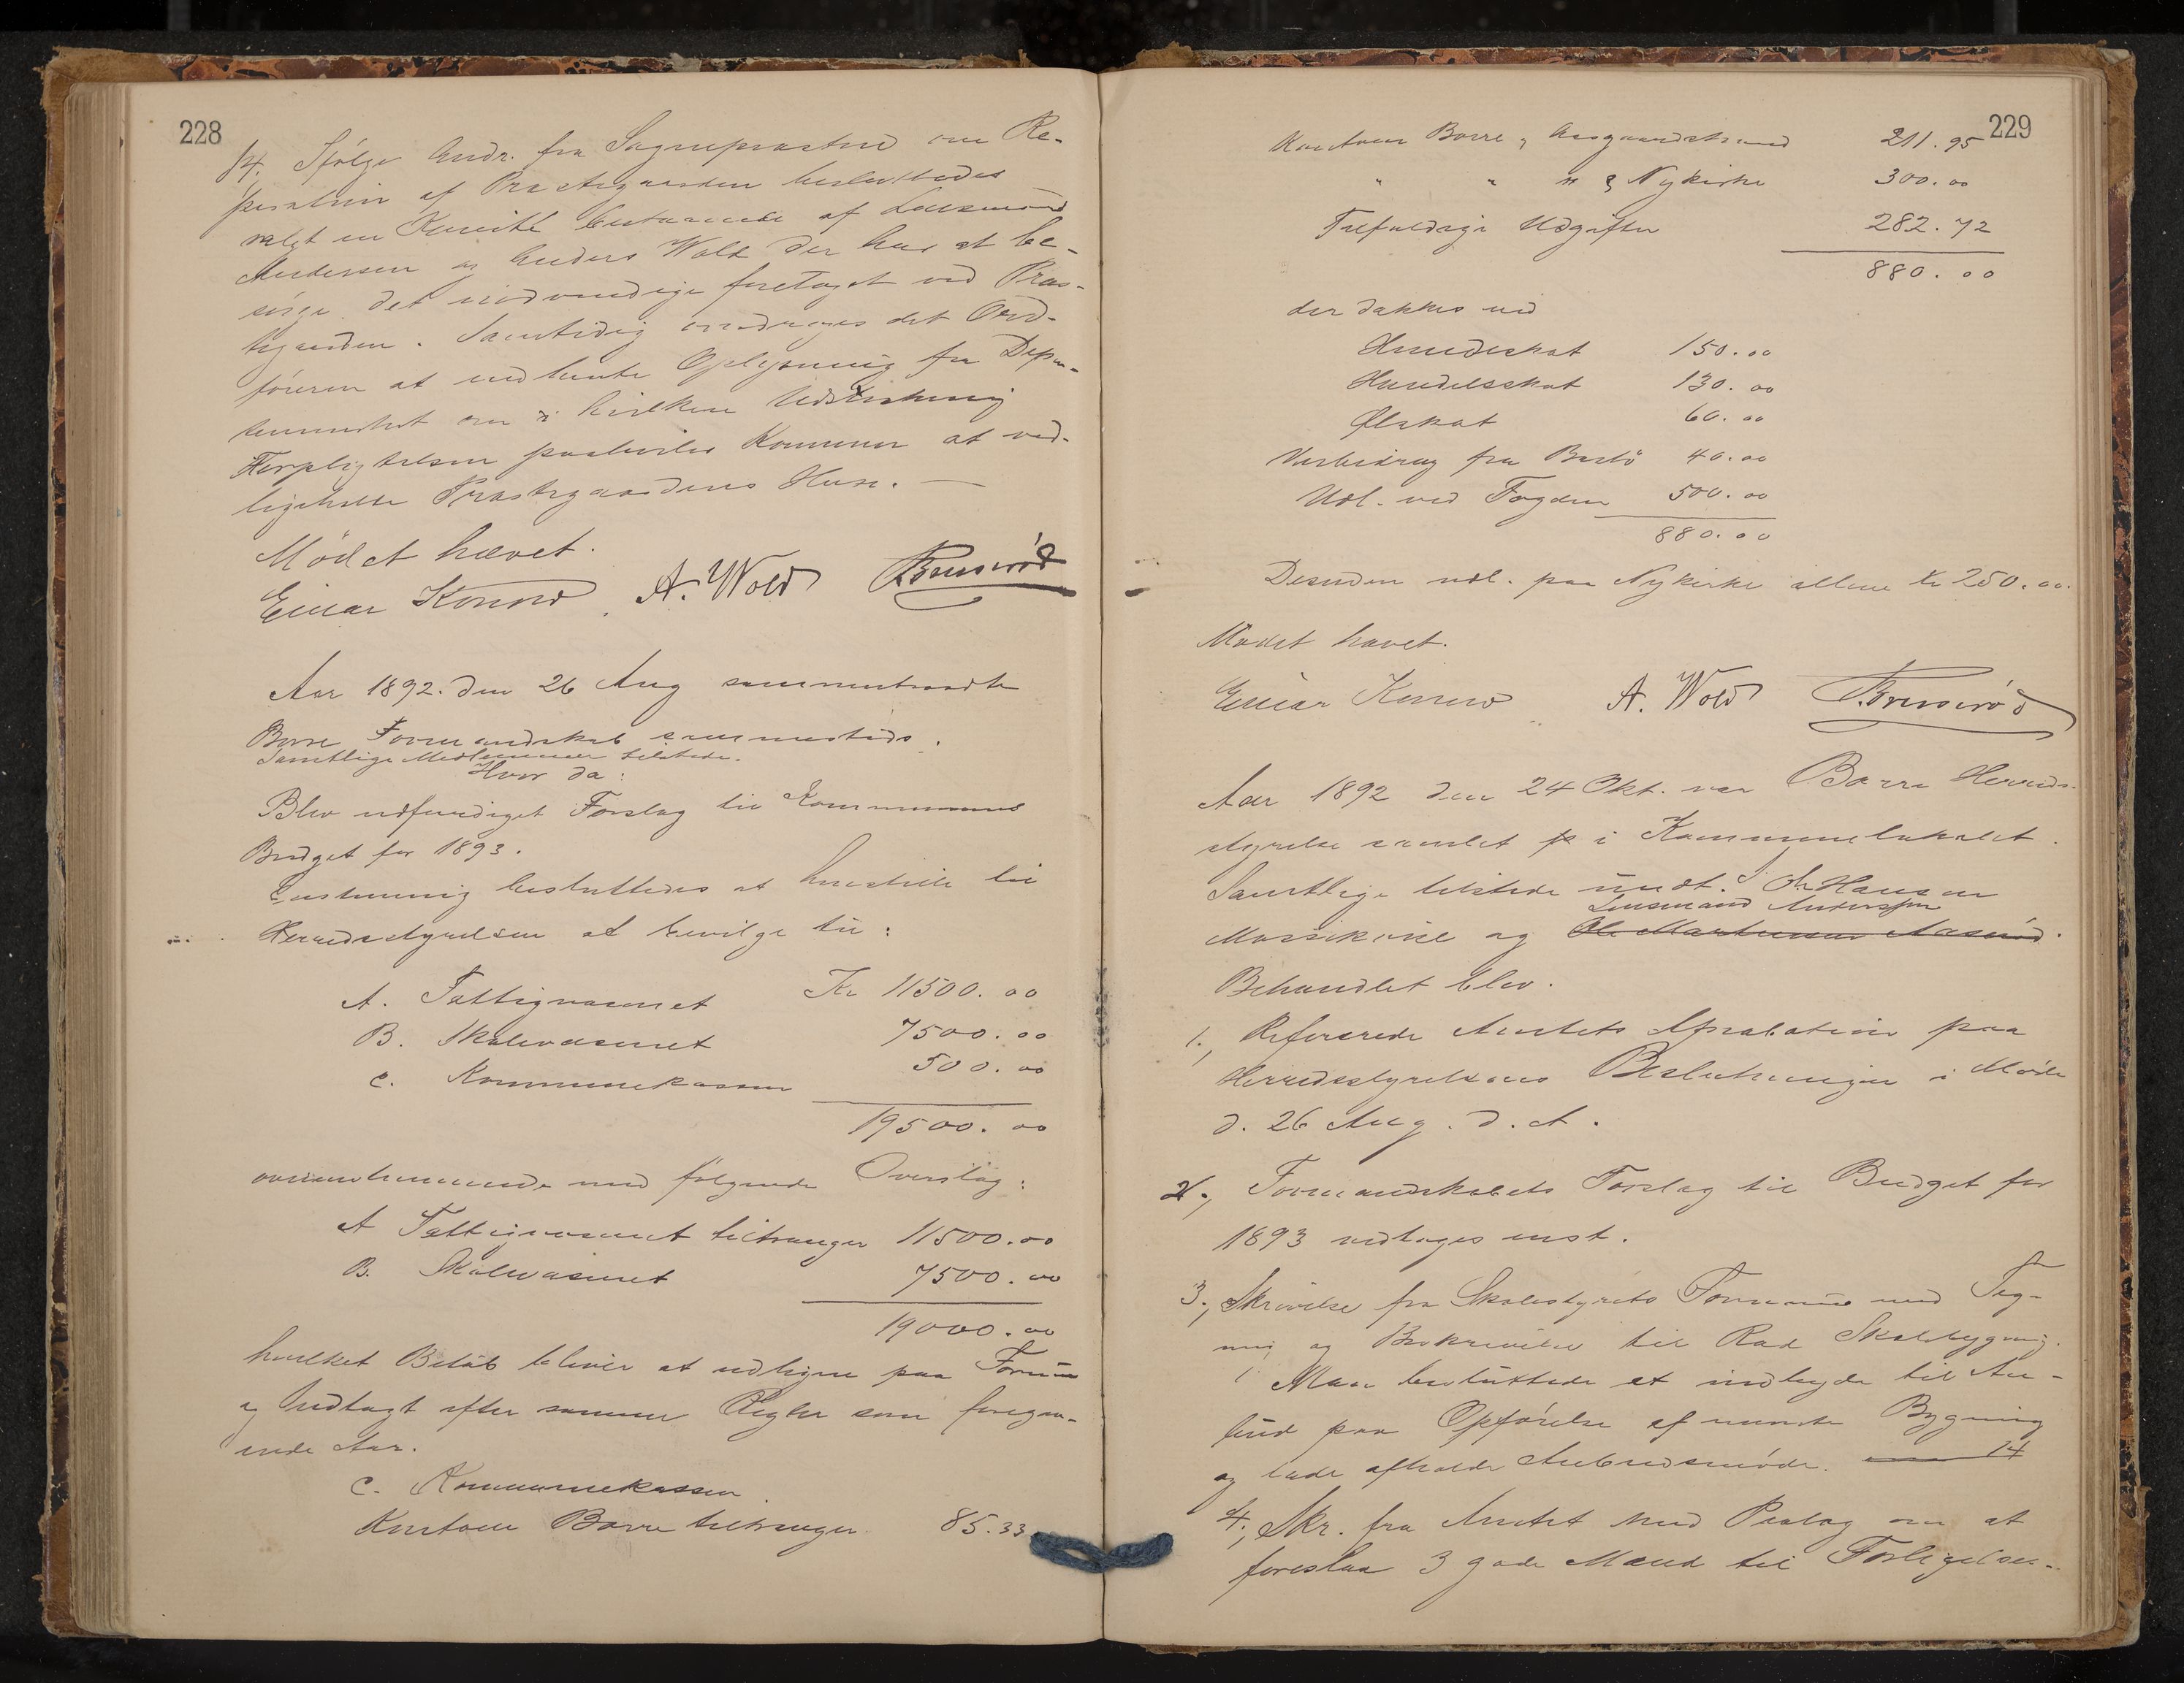 228
14, Ifølge Andr. fra Sognepræsten om Re-
peration af Præstegaarden besluttedes
valgt en Komite bestaaende af Lensmand
Andersen og Anders Wold der har at be-
sørge det nødvendige foretaget ved Præs-
tegaarden. Samtidig anmodes det Ord-
føreren at indhente Oplysning fra Depar-
tementet om i hvilken Udstrækning
Forpligtelsen paahviler Kommunen at ved-
ligeholde Præstegaardens Huse. —
Mødet hævet.
Einar Konow A. Wold Brenserød
Aar 1892. den 26 Aug sammentraadte
Borre Formandskab sammesteds.
Samtlige Medlemmer tilstede.
Hvor da:
Blev udfærdiget Forslag til Kommunens
Budget for 1893.
Enstemmig besluttedes at henstille til
Herredsstyrelsen at bevilge til:
A. Fattigvæsenet Kr 11500.00
B. Skolevæsenet 7500.00
C. Kommunekassen 500.00
19500.00
overensstemmende med følgende Overslag:
A Fattigvæsenet tiltrænger 11500.00
B. Skolevæsenet 7500.00
19000.00
hvilket Beløb bliver at udligne paa Formue
og Indtægt efter samme Regler som foregaa-
ende Aar.
C. Kommunekassen.
Kontoen Borre tiltrænger 85.33
229
Kontoen Borre & Aasgaardstrand 211.95
" " " & Nykirke 300.00
Tilfældige Udgifter 282.72
880.00
der dækkes ved
Hundeskat 150.00
Handelsskat 130.00
Ølskat 60.00
Veibidrag fra Bastø 40.00
Udl. ved Fogden 500.00
880.00
Desuden udl. paa Nykirke allene Kr 250.00.
Mødet hævet.
Einar Konow A. Wold Brenserød
Aar 1892 den 24 Okt. var Borre Herreds-
styrelse samlet p i Kommunelokalet.
Samtlige tilstede undt. Hansen
Lensmand Andersen
og Ole Martinsen Aaserød.
Behandlet blev.
1., Refererede Amtets Aprobation paa
Herredsstyrelsens Beslutninger i Møde
d. 26 Aug. d. A.
2., Formandskabets Forslag til Budget for
1893 vedtages enst.
3., Skrivelse fra Skolestyrets Formand med Teg-
ning og Beskrivelse til Rød Skolebygning.
Man besluttede at indbyde til An-
bud paa Opførelse af nævnte Bygning
og lade afholde Anbudsmøde. 14
4., Skr. fra Amtet med Paalæg om at
foreslaa 3 gode Mænd til Forligelses-